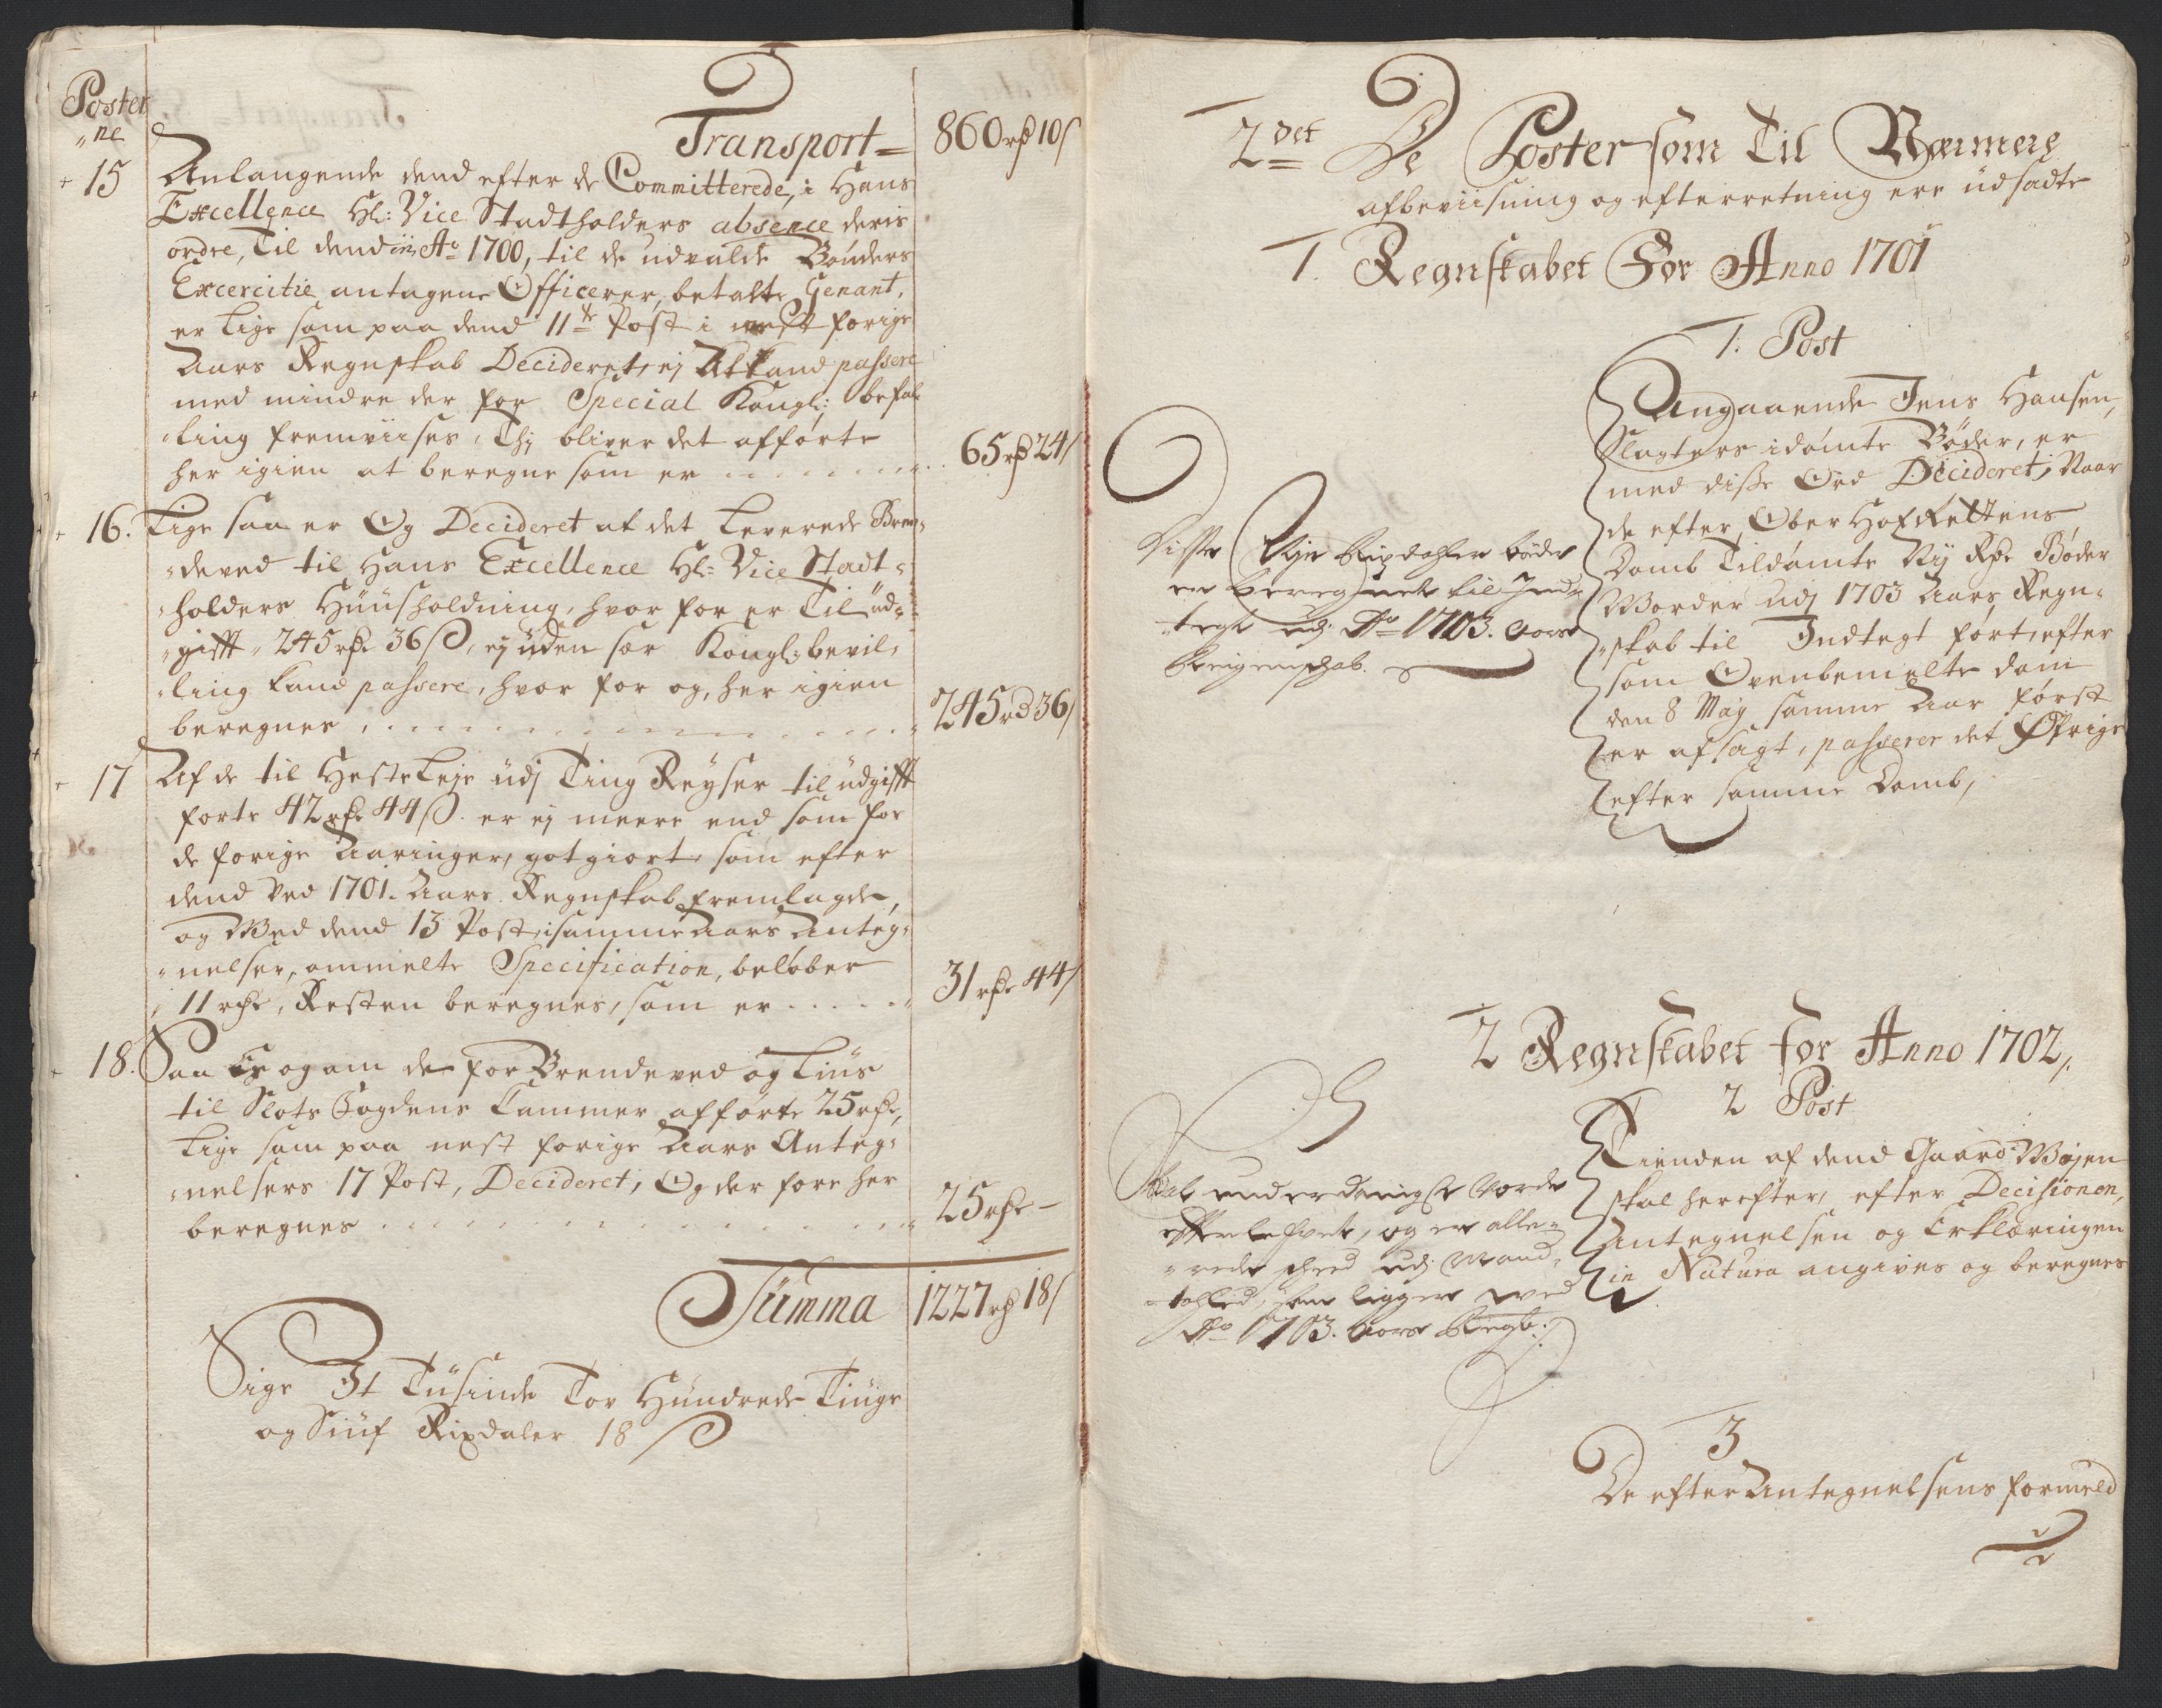 Poster
„ne
Transport = 860 rd 10 s
15 Anlangende dend efter de Committerede, i Hans
Excellence Hl: Vice Stadtholders absence deris
ordre, Til dend in Ao 1700, til de udvalde Bønders
Excercitie antagene Officerer, betalte Genant,
er lige som paa dend 11te Post i nest forige
Aars Regnskab Decideret, ej At kand passere
med mindre der for Special Kongl: befal
„ling fremviises, Thj bliver det afførte
her igien at beregne som er ....... 65 rd 24 s
16. Lige saa er Og Decideret at det Leverede Bren„
„deved til Hans Excellence Hl: Vice Stadt„
„holders Huusholdning, hvor for er Til ud„
„gifft „ 245 rd 36 s, ej uden sær Kongl: bevil„
„ling kand passere, hvor for og, her igien
beregnes ....... 245 rd 36 s
17 Af de til Heste Leje udj Ting Reyser til udgifft
førte 42 rd 44 s. er ej meere end som for
de forige Aaringer, gotgiort, som efter
dend Ved 1701. Aars Regnskab fremlagde,
og Wed dend 13 Post i samme Aars Anteg„
„nelser, ommelte Specification, beløber
„ 11 rd, Resten beregnes, som er ..... 31 rd 44 s
18. Saa er og om de for Brendeved og Lius
til Slots Fogdens Cammer afførte 25 rd,
Lige som paa nest forige Aars Anteg„
„nelsers 17 Post, Decideret, Og der fore her
beregnes ....... 25 rd –
Summa 1227 rd 18 s
Sige Et Tusinde Tov Hundrede Tiuge
og Siuf Rixdaler 18 s
2det De Poster som Til Nærmere
afbeviisning og efterretning ere udsadte
1. Regnskabet For Anno 1701
1. Post
Angaaende Jens Hansen,
Slagters idømte Bøder, er
med disse Ord Decideret; Naar
de efter Ober Hof Rettens
Domb Tildømte Nij Rd Bøder
Worder udj 1703 Aars Regn„
„skab til Indtegt ført, efter
som Ovenbemelte dom
den 8 Maij samme Aar først
er afsagt, passerer det Øfrige
efter samme Domb,
Disse Nije Rixdahler bøder
er beregnet til Ind„
„tegt udj Ao 1703. Aars
Reigenschab.
2 Regnskabet for Anno 1702,
2 Post
Tienden af dend Gaard Wøjen
skal herefter, efter Decisionen,
Antegnelsen og Erklæringen
in Natura angives og beregnes
Skal underdanigst Vorde
efterlefvet, og er alle„
„rede skeed udj Mand„
„tahled, som ligger wed
Ao 1703. Aars Regb:
3
De efter Antegnelsens formeld